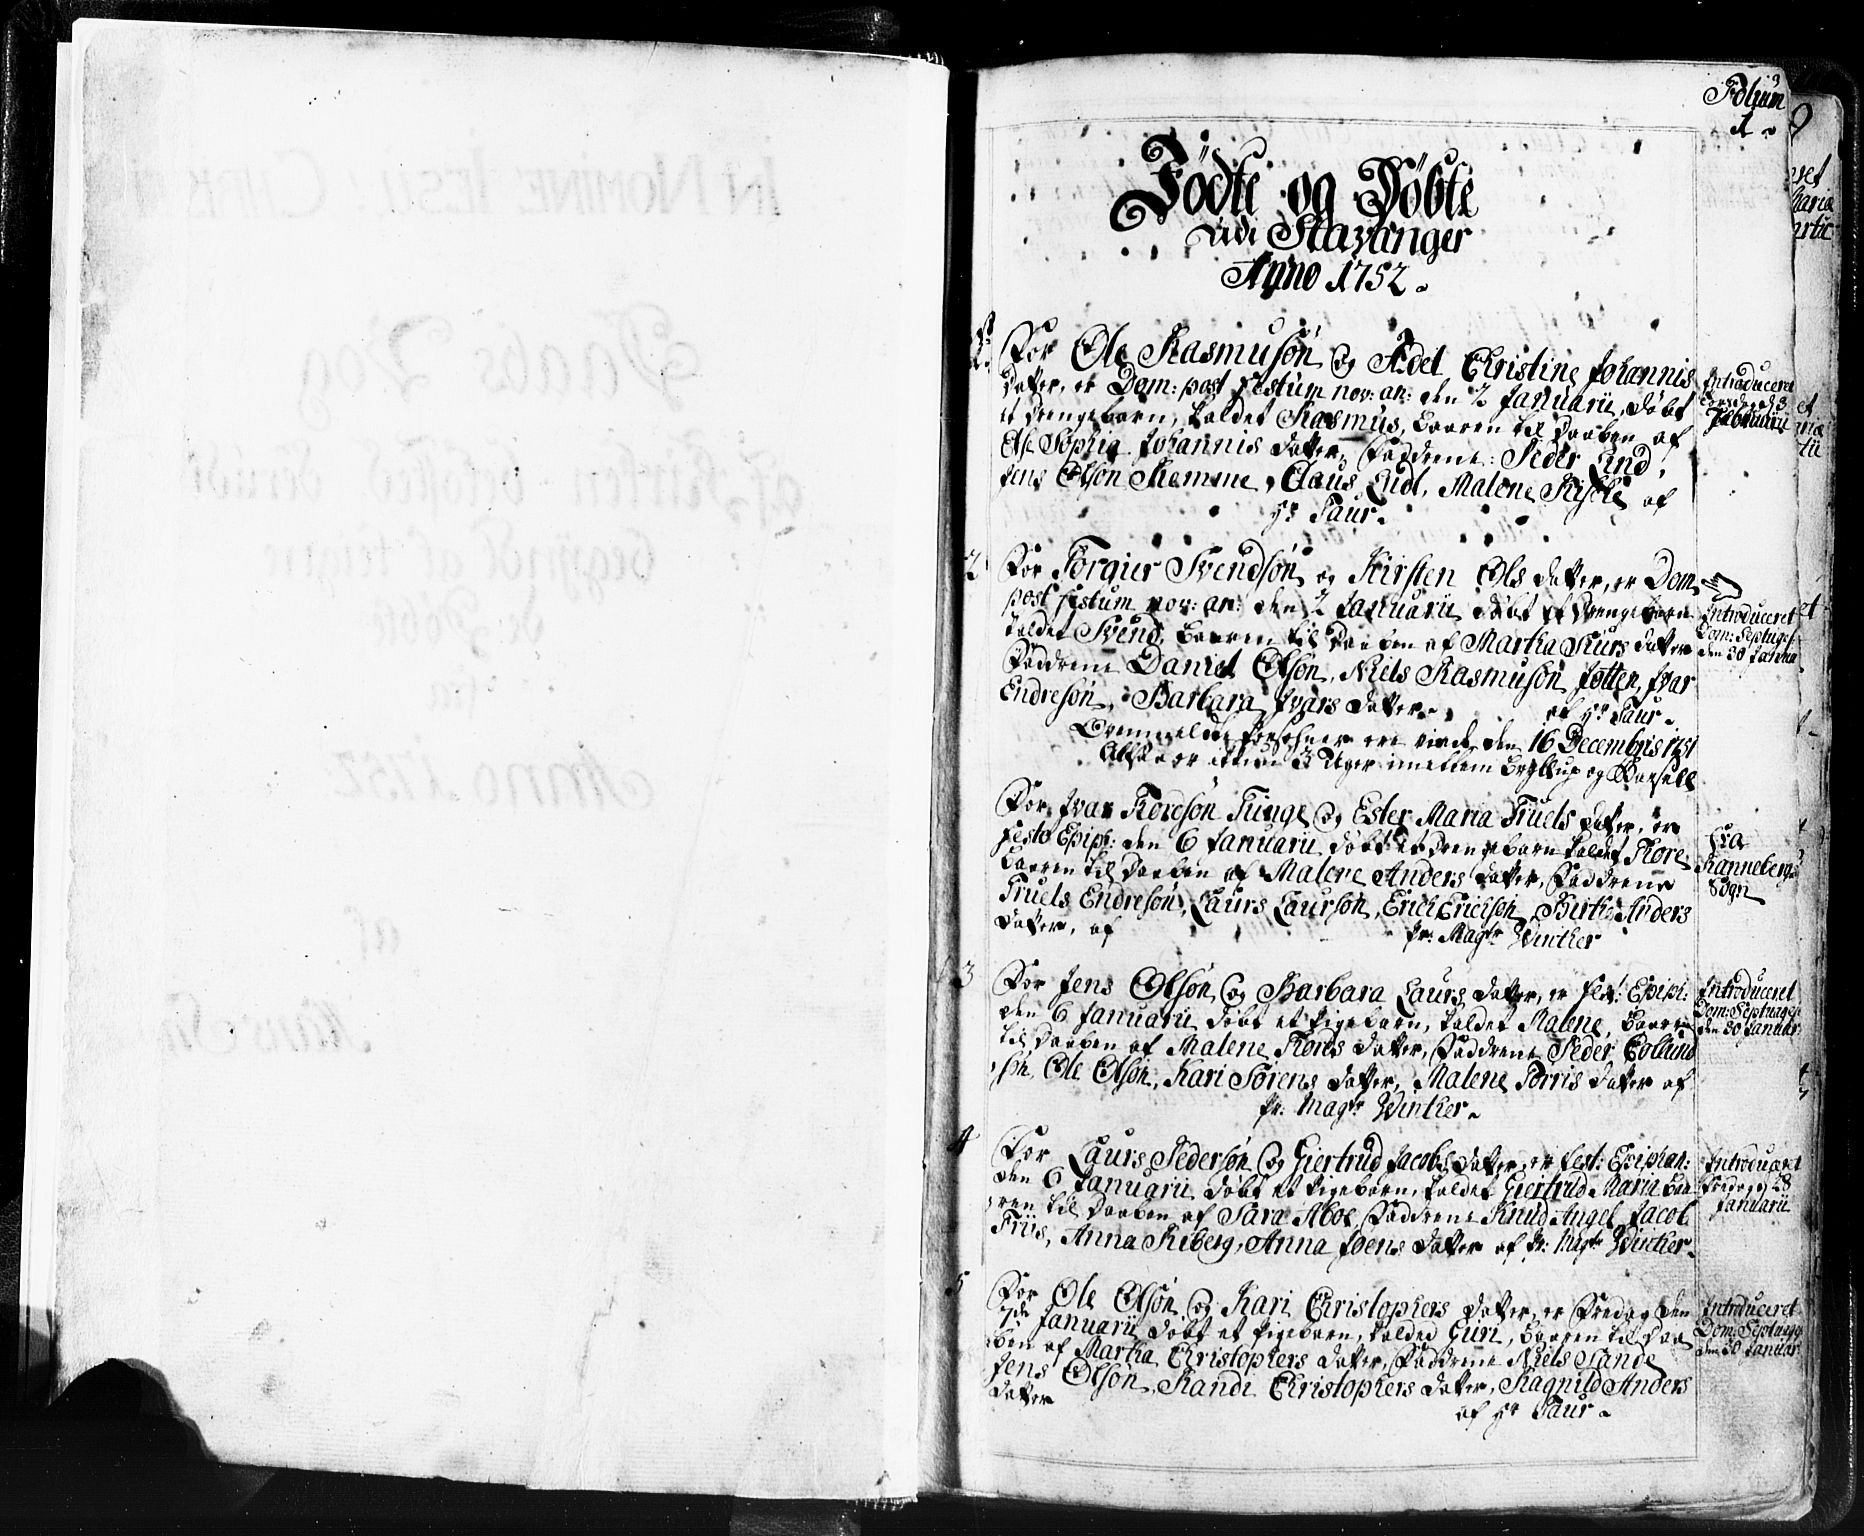 Folium
1
Födte og Döbte
udi Stavanger
Anno 1752
1. For Ole Rasmusøn og Adel Christine Johannis
Datter, er Dom: post festum nov: an: den 2 Januarii, døbt
et Drengebarn, kaldet Rasmus, baaren til Daaben af
Else Sophia Johannis Datter, Faddrene: Peder Lind,
Jens Olsøn Klemme, Claus Ludt, Malene Kisble af
Hr Saur
Introduceret
Torsdag d. 3
Februarii
2 For Torgier Svendsøn og Kirsten Ols Datter, er Dom
post festum nov: an: den 2 Januarii døbt et Drengebarn
kaldet Svend, baaren til Daaben af Martha Siurs Datter
Faddrene Daniel Olsøn, Niels Rasmusøn Jøtten, Ivar
Endresøn, Barbara Ivars Datter af Hr Saur
Ovenmeldte Personer ere viede den 16 Decembris 1751
Altsaa er ikkun 3 Uger imellem Bryllup og Barsell
Introduceret
Dom: Septuages:
den 30 Janua
For Ivar Toresøn Tinge og Ester Maria Truels Datter, er
festo Epiph: den 6 Januarii døbt et Drengebarn kaldet Tore
baaren til Daaben af Malene Anders Datter, Faddrene
Truels Endresøn, Laurs Laursøn, Erich Erichsøn, Birthe Anders
Datter, af Hr: Magtr Winther
Fra
Ranneberg
Sogn
3 For Jens Olsøn og Barbara Laurs Datter, er fest: Epiph:
den 6 Januarii døbt et Pigebarn, kaldet Malene, baaren
til Daaben af Malene Tores Datter, Faddrene Peder Edlund
søn, Ole Olsøn, Kari Sørens Datter, Malene Torris Datter af
Hr: Magtr Winther
Introduceret
Dom: Septuages
den 30 Januar
4 For Laurs Pedersøn og Giertrud Jacobs Datter, er fest: Epiphan:
den 6 Januarii døbt et Pigebarn, kaldet Giertrud Maria baa
ren til Daaben af Sara Aboe, Faddrene Knud Angel, Jacob
Friis, Anna Kiberg, Anna Joens Datter af Hr: Magtr Winther
Introduceret
Fredag d 28
Januarii
5 For Ole Olsøn og Kari Christophers Datter, er Fredag den
7de Januarii døbt et Pigebarn, kaldet Guri, baaren til Daa
ben af Martha Christophers Datter, Faddrene Niels Sande
Jens Olsøn, Randi Christophers Datter, Ragnild Anders
Datter
af Hr Saur
Introduceret
Dom: Septuages
den 30 Januar